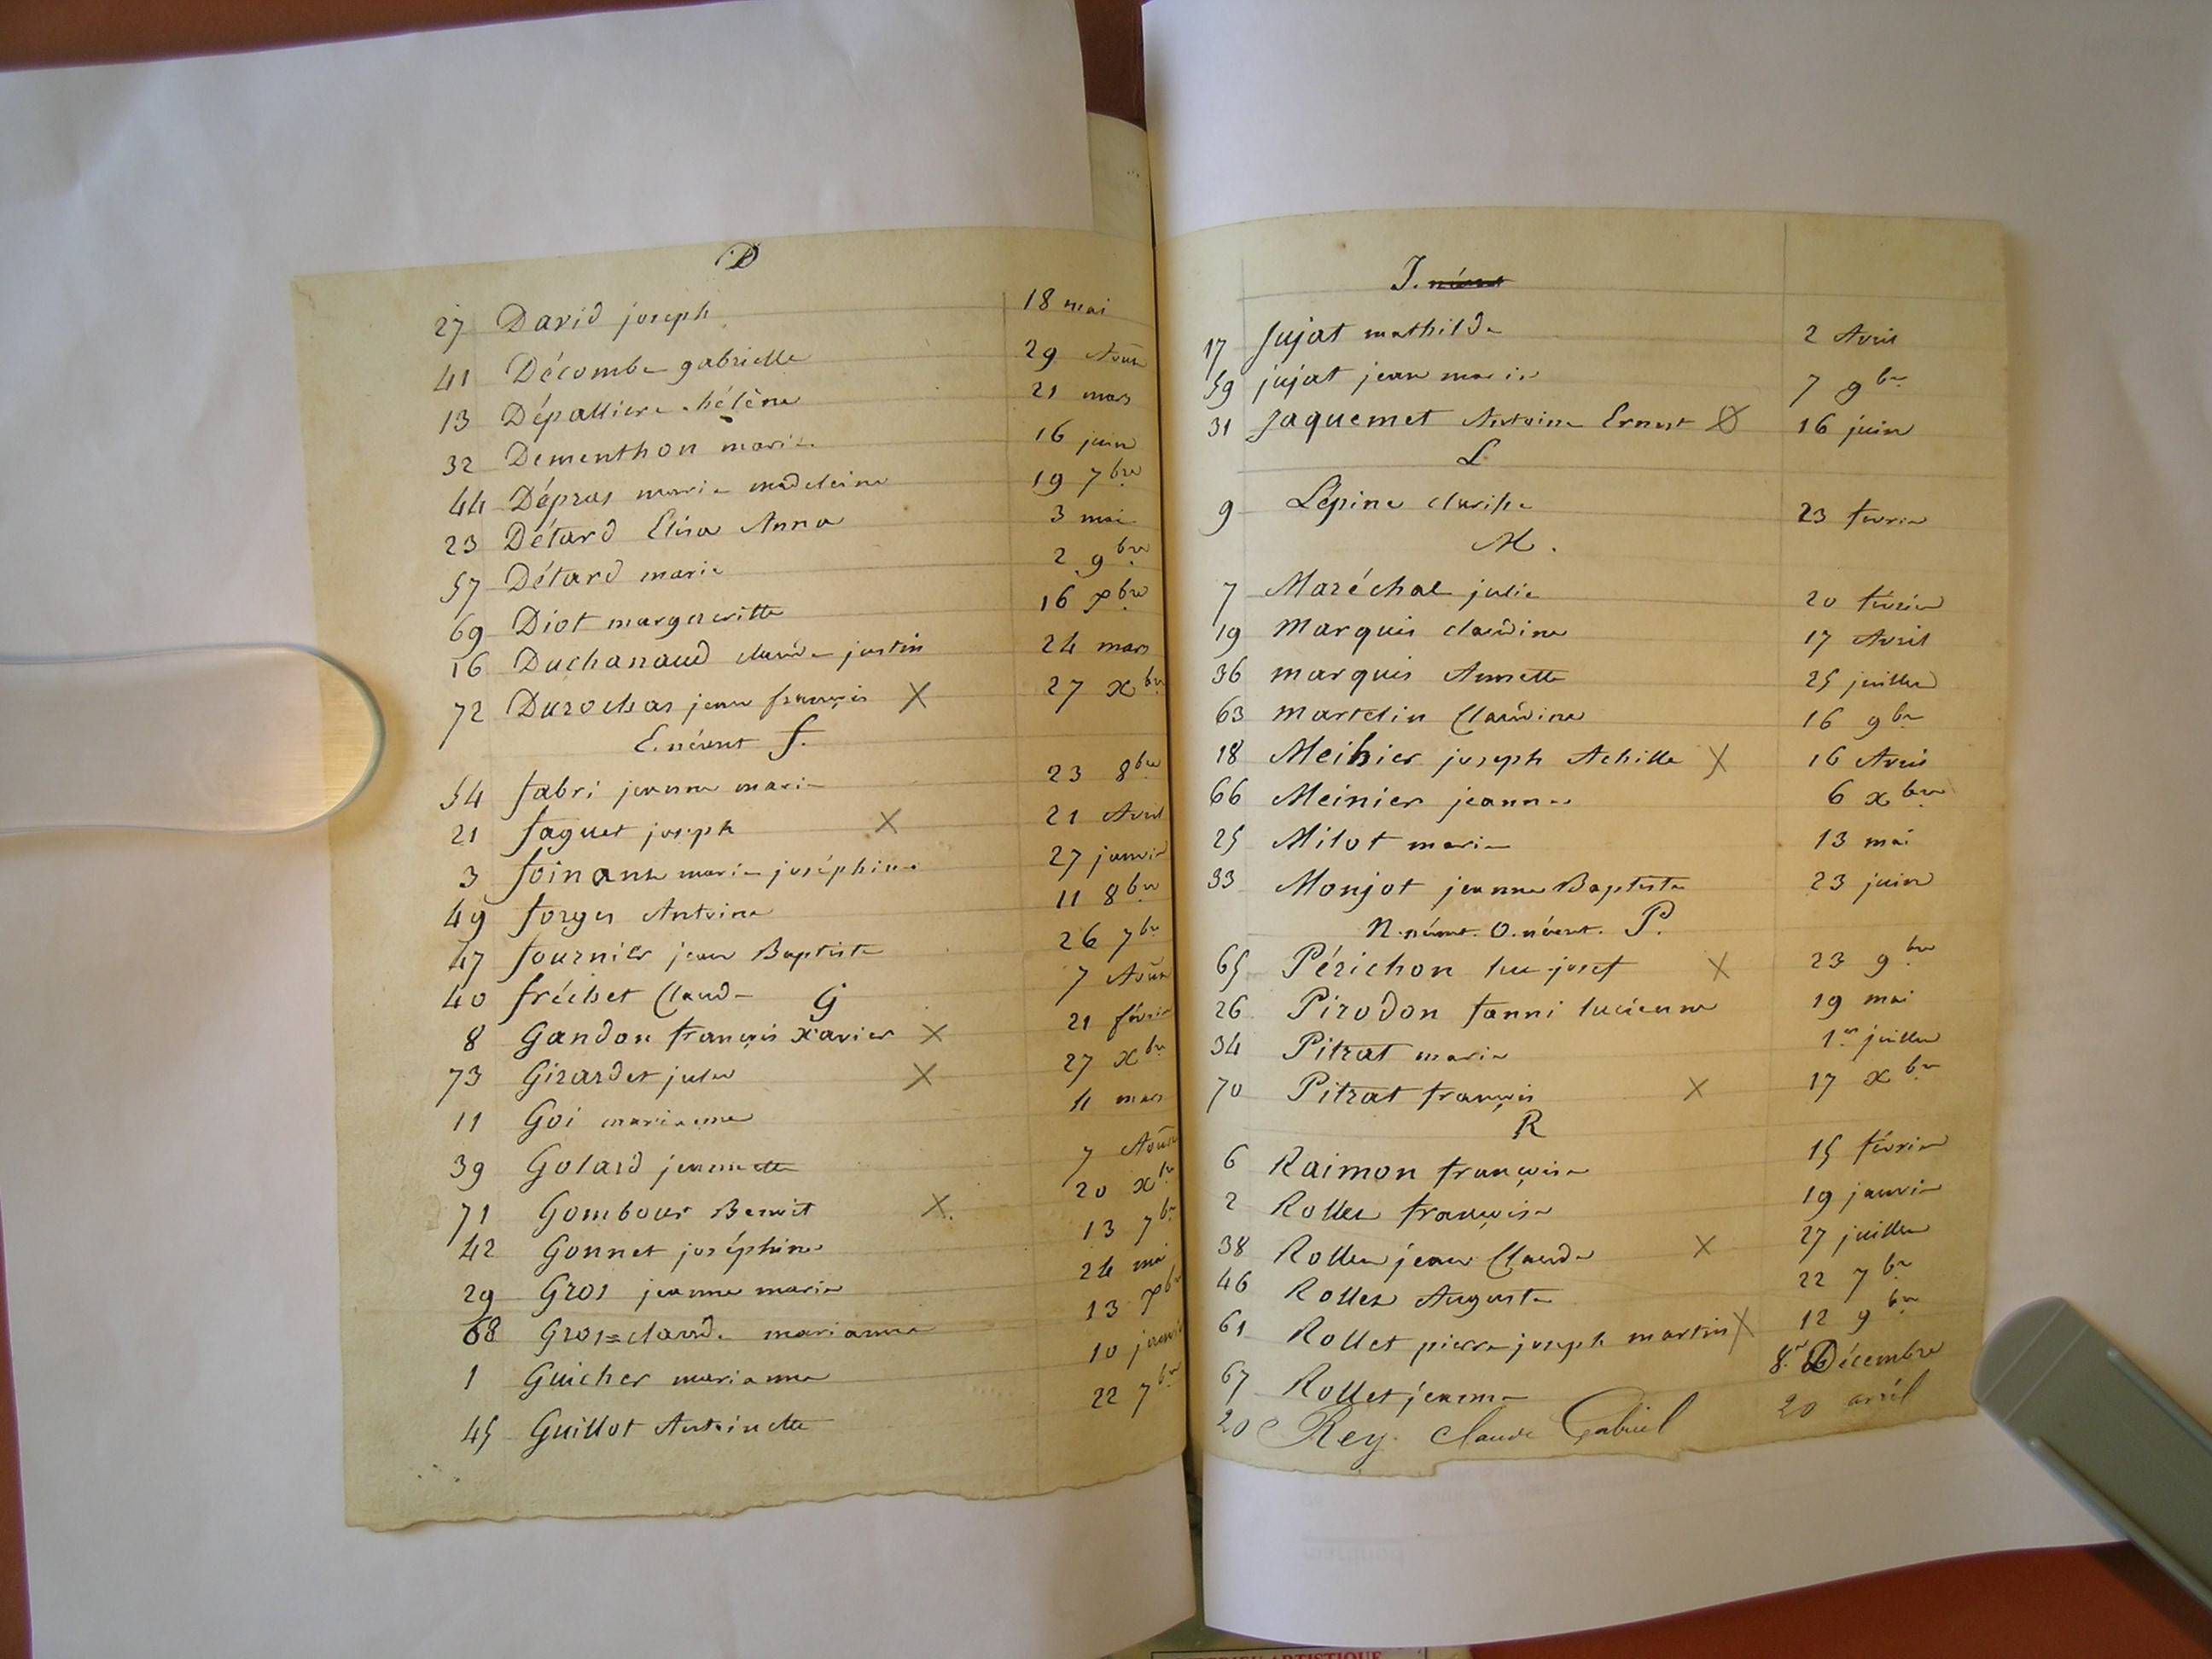 D
27 David joseph 18 mai
41 Décombe gabrielle 29 Août
13 Dépalliere hélène 21 mars
32 Dementhon marie 16 juin
44 Dépras marie madeleine 19 7bre
23 Détard Elisa Anna 3 mai
57 Détard marie 2 9bre
69 Diot margueritte 16 xbre
16 Duchanaud claude justin 24 mars
72 Durochas jean françois X 27 xbre
E. néant f.
54 fabri jeanne marie 23 8bre
21 faguet joseph X 21 Avril
3 marie joséphine 27 janvier
49 forges Antoine 11 8bre
47 fournier jean Baptiste 26 7bre
40 fréchet Claude 7 Août
G
8 Gandon françois Xavier X 21 févrie
73 Girardet jules X 27 xbre
11 Goi marianne 11 mars
39 Golard jeannette 7 Août
71 Gombour Benoit X. 20 xbre
42 Gonnet joséphine 13 7bre
29 Gros jeanne marie 24 mai
68 Gros=claude marianne 13 xbre
1 Guicher marianne 10 janvie
45 Guillot Antoinette 22 7bre
J. néant
17 Jujat mathilde 2 Avril
59 jujat jean marie 7 9bre
31 Jaquemet Antoine Ernest X 16 juin
L
9 Lépine 23 fevrie
M.
7 Maréchal julie 20 févrie
19 Marquis claudine 17 Avril
36 marquis Annette 25 juillet
63 martelin Claudine 16 9bre
18 Meinier joseph Achille X 16 Avril
66 Meinier jeanne 6 xbre
25 Milot marie 13 mai
33 Monjot jeanne Baptiste 23 juin
N. néant. O. néant. P.
65 Périchon luc josef X 23 9bre
26 Pirodon fanni lucienne 19 mai
34 Pitrat marie 1er juillet
70 Pitrat françois X 17 xbre
R
6 Raimon françoise 15 févrie
2 Rollet françoise 19 janvie
38 Rollet jean Claude X 27 juillet
46 Rollet Auguste 22 7bre
61 Rollet pierre joseph martin X 12 9bre
67 Rollet jeanne 8 Décembre
20 Rey Claude Gabriel 20 avril